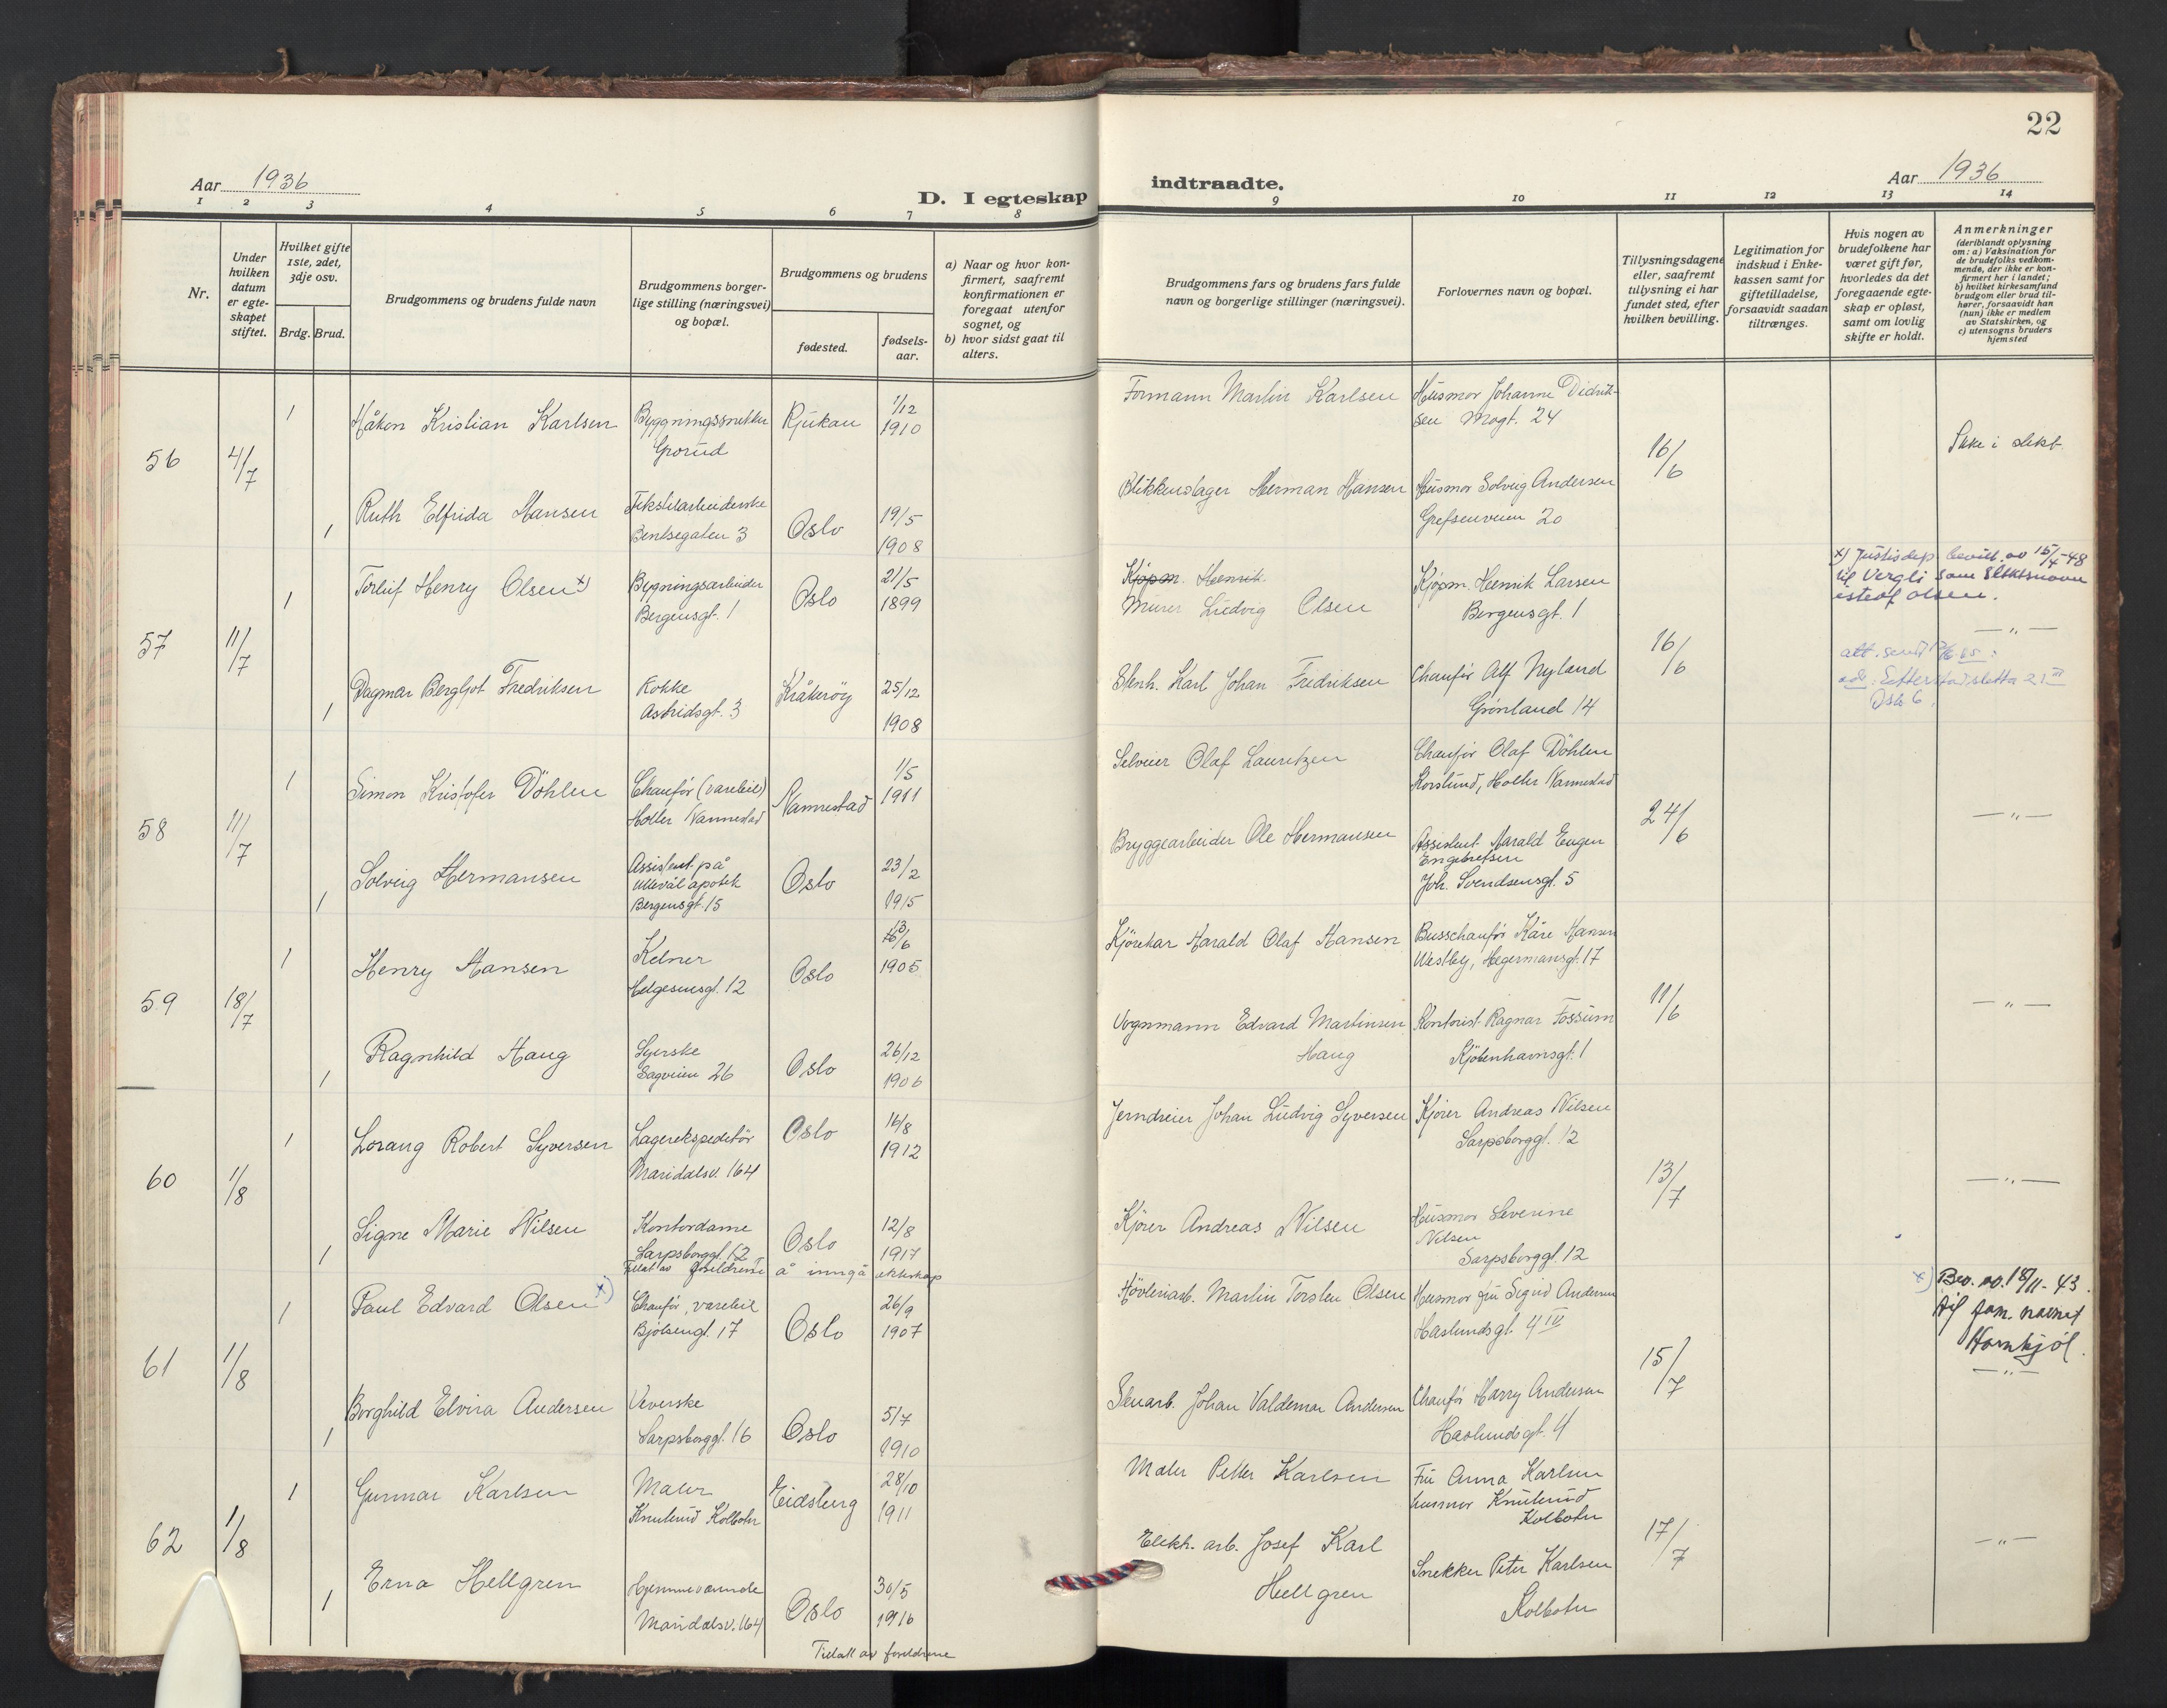 22
Aar 1936
D. I egteskap indtraadte.
Aar 1936
1 2 3 4 5 6 7 8 9 10 11 12 13 14
Nr.
Under hvilken datum er egteskapet stiftet.
Hvilket gifte 1ste, 2det, 3dje osv.
Brdg. Brud.
Brudgommens og brudens fulde navn
Brudgommens borgerlige stilling (næringsvei) og bopæl.
Brudgommens og brudens
fødested.
fødselsaar.
a) Naar og hvor konfirmert, saafremt konfirmationen er foregaat utenfor sognet, og
b) hvor sidst gaat til alters.
Brudgommens fars og brudens fars fulde navn og borgerlige stillinger (næringsvei).
Forlovernes navn og bopæl.
Tillysningsdagene eller, saafremt tillysning ei har fundet sted, efter hvilken bevilling.
Legitimation for indskud i Enkekassen samt for giftetilladelse, forsaavidt saadan tiltrænges.
Hvis nogen av brudefolkene har været gift før, hvorledes da det foregaaende egteskap er opløst, samt om lovlig skifte er holdt.
Anmerkninger
(deriblandt oplysning om: a) Vaksination for de brudefolks vedkommende, der ikke er konfirmert her i landet; b) hvilket kirkesamfund brudgom eller brud tilhører, forsaavidt han (hun) ikke er medlem av Statskirken, og c) utensogns bruders hjemsted
56 4/7
1 Håkon Kristian Karlsen
Bygningssnekker
Grorud
Rjukan
1/12
1910
Formann Martin Karlsen
Husmor Johanne Didriksen Mogt. 24
16/6
Ikke i slekt
1 Ruth Elfrida Hansen
Tekstilarbeiderske
Bentsegaten 3
Oslo
19/5
1908
Blikkenslager Herman Hansen
Husmor Solveig Andersen
Grefsenveien 20
57 11/7
1 Torleif Henry Olsen x)
Bygningsarbeider
Bergensgt. 1
Oslo
21/5
1899
Kjøpm. Henrik
Murer Ludvig Olsen
Kjøpm. Henrik Larsen
Bergensgt. 1
16/6
x) Justisdep. bevill. av 15/4-48
til Vergli som slektsnavn
istef. olsen.
— „ —
1 Dagmar Bergljot Fredriksen
Kokke
Astridsgt. 3
Kråkerøy
25/12
1908
Stenh. Karl Johan Fredriksen
Chaufør Alf Nyland
Grønland 14
att. sendt
Oslo 6.
58 11/7
1 Simon Kristofer Döhlen
Chaufør (varebil)
Holter Nannestad
Nannestad
1/5
1911
Selveier Olaf Lauritzen
Chaufør Olaf Döhlen
Korslund, Holter Nannestad
24/6
— „ —
1 Solveig Hermansen
Assistent på
Ullevål apotek
Bergensgt. 15
Oslo
23/2
1915
Bryggearbeider Ole Hermansen
Assistent Harald Eugen
Engebretsen
Joh. Svendsensgt. 5
59 18/7
1 Henry Hansen
Kelner
Helgesensgt. 12
Oslo
1905
Kjørekar Harald Olaf Hansen
Busschaufør Kåre Hansen
Westby, Hegermansgt. 17
11/6
— „ —
1 Ragnhild Haug
Syerske
Sagveien 26
Oslo
26/12
1906
Vognmann Edvard Martinsen
Haug
Kontorist Ragnar Fossum
Kjøbenhavnsgt. 1
60 1/8
1 Lorang Robert Syversen
Lagerekspeditør
Maridalsv. 164
Oslo
16/8
1912
Jerndreier Johan Ludvig Syversen
Kjører Andreas Nilsen
Sarpsborggt. 12
13/7
— „ —
1 Signe Marie Nilsen
Kontordame
Sarpsborggt. 12
Oslo
12/8
1917
Tillat av foreldrene å inngå ekteskap
Kjører Andreas Nilsen
Husmor Severine
Nilsen
Sarpsborggt. 12
61 1/8
1 Paul Edvard Olsen x)
Chaufør, varebil
Bjølsengt. 17
Oslo
26/9
1907
Høvleriarb. Martin Torsten Olsen
Husmor fru Sigrid Andersen
Haslundsgt. 4 IV
15/7
x) Bev. av. 18/11-43.
til fam. navnet
Hornkjøl.
— „ —
1 Borghild Elvira Andersen
Veverske
Sarpsborggt. 16
Oslo
5/7
1910
Stenarb. Johan Valdemar Andersen
Chaufør Harry Andersen
Haslundsgt. 4
62 1/8
1 Gunnar Karlsen
Maler
Knulerud Kolbotn
Eidsberg
28/10
1911
Maler Petter Karlsen
Fru Anna Karlsen
husmor Knulerud
Kolbotn
17/7
— „ —
1 Erna Hellgren
Hjemmeværende
Maridalsv. 164
Oslo
30/5
1916
Elektr. arb. Josef Karl
Hellgren
Snekker Peter Karlsen
Kolbotn
Tillatt av foreldrene